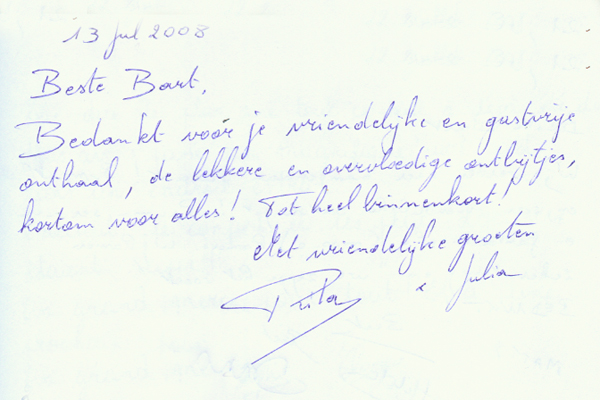 13 jul 2008
Beste Bart,
Bedankt voor je vriendelijke en gastvrije
onthaal, de lekkere en overvloedige ontbijtjes,
kortom voor alles! Tot heel binnenkort!
Met vriendelijke groeten
Julia